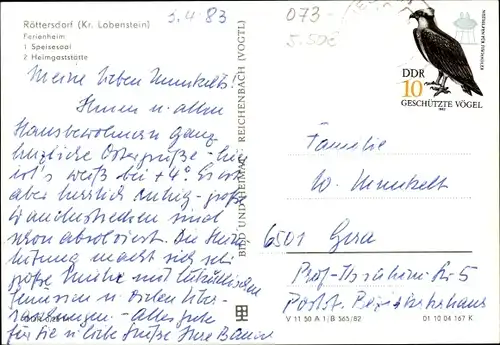 Röttersdorf (Kr. Lobenstein)
Ferienheim
1 Speisesaal
2 Heimgaststätte
3.4.83
073-
DDR
10
GESCHÜTZTE VÖGEL
1982
Meine lieben Munkelts!
Ihnen u. allen
Hausbewohnern ganz
herzliche Ostergrüße - hier
ist's weiß bei +4°. Es ist
aber herrlich ruhig - große
Wanderstrecken sind
schon absolviert. Die
macht sich sehr
große Mühe mit
Genüssen u. vielen Über-
raschungen - Alles Gute
für Sie u. liebe Grüße Ihre
BILD UND HEIMAT REICHENBACH (VOGTL)
Familie
W. Munkelt
6501 Gera
Str. 5
V 11 50 A 1/B 565/82 01 10 04 167 K